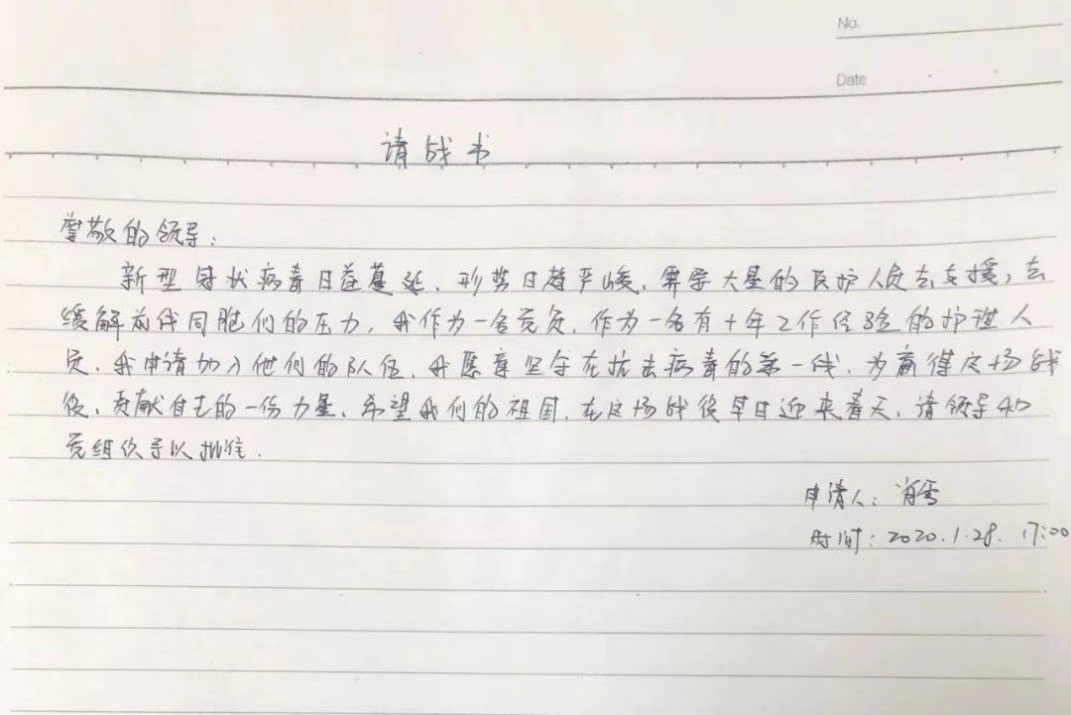 No.
Date
请战书
尊敬的领导：
新型冠状病毒日益蔓延，形势日趋严峻，需要大量的医护人员去支援，去
缓解前线同胞们的压力，我作为一名党员，作为一名有十年工作经验的护理人
员，我申请加入他们的队伍，我愿意坚守在抗击病毒的第一线，为赢得这场战
役，贡献自己的一份力量，希望我们的祖国，在这场战役早日迎来春天，请领导和
党组织予以批准.
申请人：肖雪
时间：2020.1.28. 17:00